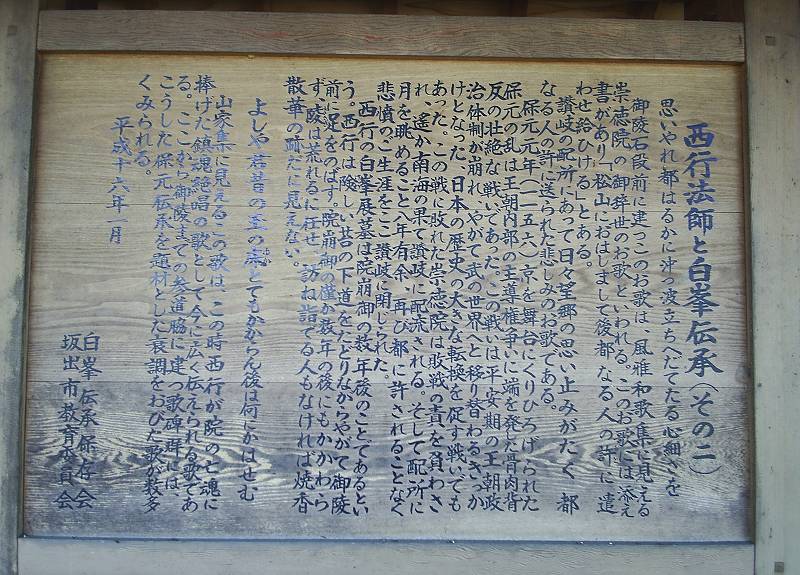 西行法師と白峯伝承(その二)
思いやれ都はるかに沖つ波立ちへだてたる心細さを
御陵石段前に建つこのお歌は、風雅和歌集に見える
崇徳院の御辞世のお歌といわれる。このお歌には添え
書があり「松山におはしまして後都なる人の許に遣
わせ給ひける」とある。
讃岐の配所にあって日々望郷の思い止みがたく都
なる人の許に送られた悲しみのお歌である。
保元元年(一一五六)京を舞台にくりひろげられた
保元の乱は王朝内部の主導権争いに端を発し骨肉背
反の壮絶な戦いであった。この戦いは平安期の王朝政
治体制が崩れ、やがて武の世界へと移り替わるきっか
けとなった、日本の歴史の大きな転換を促す戦いでも
あった。この戦に敗れた崇徳院は敗戦の責を負わさ
れ、遥か南海の果て讃岐に配流される。そして配所に
月を眺めること八年有余、再び都に許されることなく
悲憤のご生涯をここ讃岐に閉じられた。
西行の白峯展墓は院崩御の数年後のことであるとい
う。西行は険しい苔の下道をたどりながらやがて御陵
前に足をのばす。院崩御の僅か数年の後にもかかわら
ず、陵は荒れるに任せ、訪ね詣でる人もなければ焼香
散華の跡だに見えない。
よしや君昔の玉の床とてもかからん後は何にかはせむ
山家集に見えるこの歌は、この時西行が院の亡魂に
捧げた鎮魂絶唱の歌として今に広く伝えられる歌であ
る。ここから御陵までの参道脇に建つ歌碑群には、
こうした保元伝承を題材とした哀調をおびた歌が数多
くみられる。
平成十六年一月
白峯伝承保存会
坂出市教育委員会